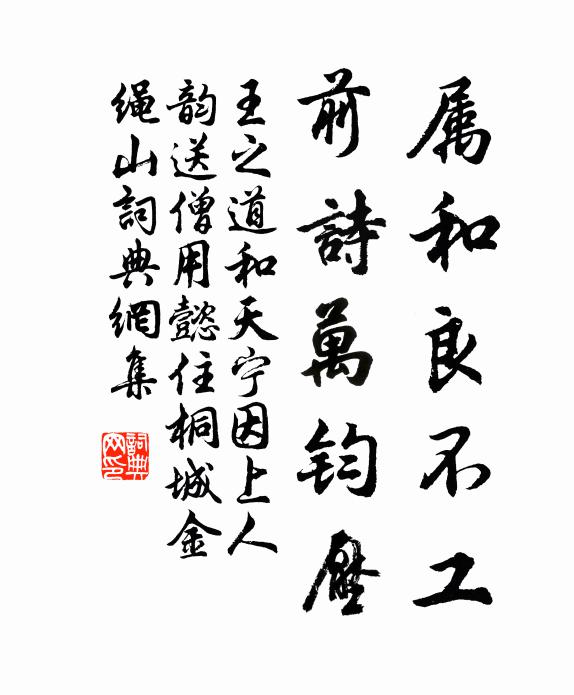 属和良不工
前詩萬钧壓
王之道和天宁因上人
韵送僧用懿住桐城金
绳山詞典網集
詞典网印